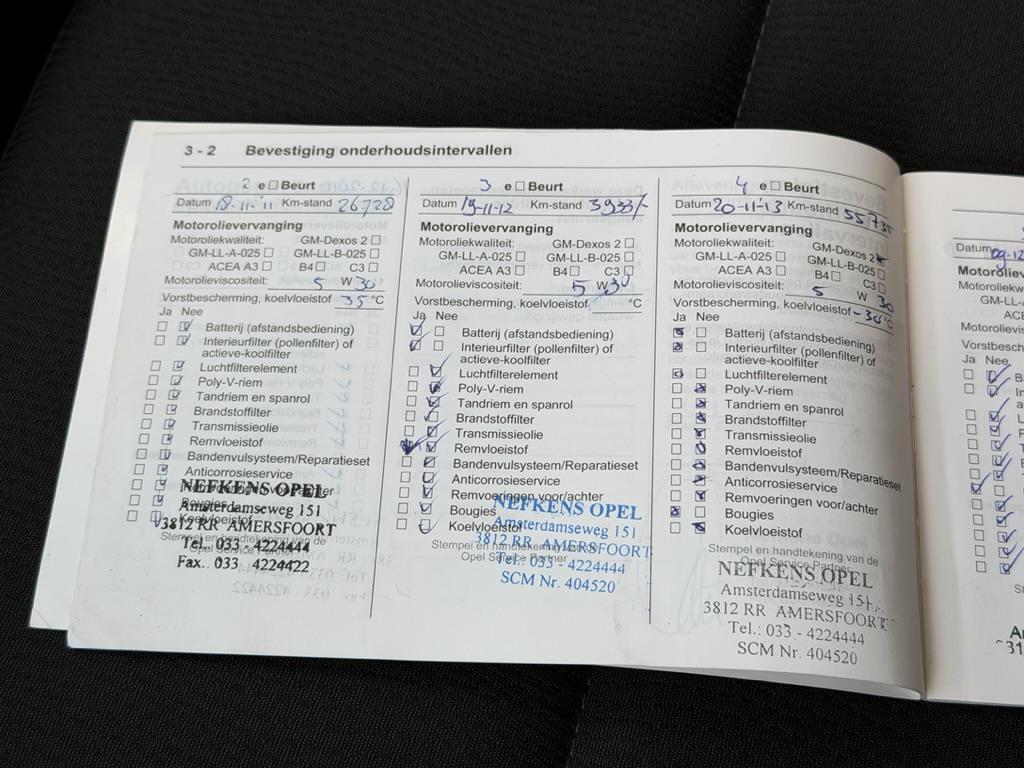 3 - 2 Bevestiging onderhoudsintervallen
2 e Beurt
Datum 18-11-'11 Km-stand 26728
Motorolievervanging
Motoroliekwaliteit: GM-Dexos 2
GM-LL-A-025 GM-LL-B-025
ACEA A3 B4 C3
Motorolieviscositeit: 5 W 30
Vorstbescherming, koelvloeistof 35 °C
Ja Nee
Batterij (afstandsbediening)
Interieurfilter (pollenfilter) of
actieve-koolfilter
Luchtfilterelement
Poly-V-riem
Tandriem en spanrol
Brandstoffilter
Transmissieolie
Remvloeistof
Bandenvulsysteem/Reparatieset
Anticorrosieservice
Bougies
Koelvloeistof
Stempel en handtekening van de
Opel Service Partner
NEFKENS OPEL
Amsterdamseweg 151
3812 RR AMERSFOORT
Tel.. 033 - 4224444
Fax.. 033 4224422
3 e Beurt
Datum 19-11-12 Km-stand
Motorolievervanging
Motoroliekwaliteit: GM-Dexos 2
GM-LL-A-025 GM-LL-B-025
ACEA A3 B4 C3
Motorolieviscositeit: 5 W 30
Vorstbescherming, koelvloeistof °C
Ja Nee
Batterij (afstandsbediening)
Interieurfilter (pollenfilter) of
actieve-koolfilter
Luchtfilterelement
Poly-V-riem
Tandriem en spanrol
Brandstoffilter
Transmissieolie
Remvloeistof
Bandenvulsysteem/Reparatieset
Anticorrosieservice
Remvoeringen voor/achter
Bougies
Koelvloeistof
Stempel en handtekening van de
Opel Service Partner
NEFKENS OPEL
Amsterdamseweg 151
3812 RR AMERSFOORT
Tel.: 033 - 4224444
SCM Nr. 404520
4 e Beurt
Datum 20-11-13 Km-stand
Motorolievervanging
Motoroliekwaliteit: GM-Dexos 2
GM-LL-A-025 GM-LL-B-025
ACEA A3 B4 C3
Motorolieviscositeit: 5 W 30
Vorstbescherming, koelvloeistof -30 °C
Ja Nee
Batterij (afstandsbediening)
Interieurfilter (pollenfilter) of
actieve-koolfilter
Luchtfilterelement
Poly-V-riem
Tandriem en spanrol
Brandstoffilter
Transmissieolie
Remvloeistof
Bandenvulsysteem/Reparatieset
Anticorrosieservice
Remvoeringen voor/achter
Bougies
Koelvloeistof
Stempel en handtekening van de
Opel Service Partner
NEFKENS OPEL
Amsterdamseweg 151
3812 RR AMERSFOORT
Tel.: 033 - 4224444
SCM Nr. 404520
Datum
Ja Nee